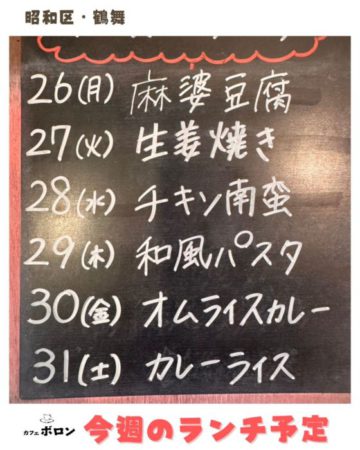 昭和区・鶴舞
26(月) 麻婆豆腐
27(火) 生姜焼き
28(水) チキン南蛮
29(木) 和風パスタ
30(金) オムライスカレー
31(土) カレーライス
カフェ ボロン 今週のランチ予定